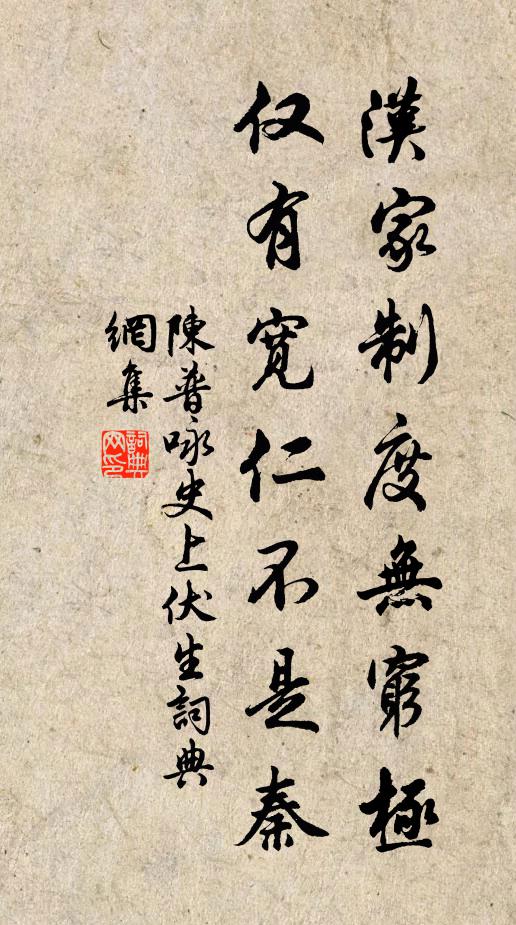 漢家制度無窮極
仅有寬仁不是秦
陳普咏史上伏生詞典
網集
詞典网印